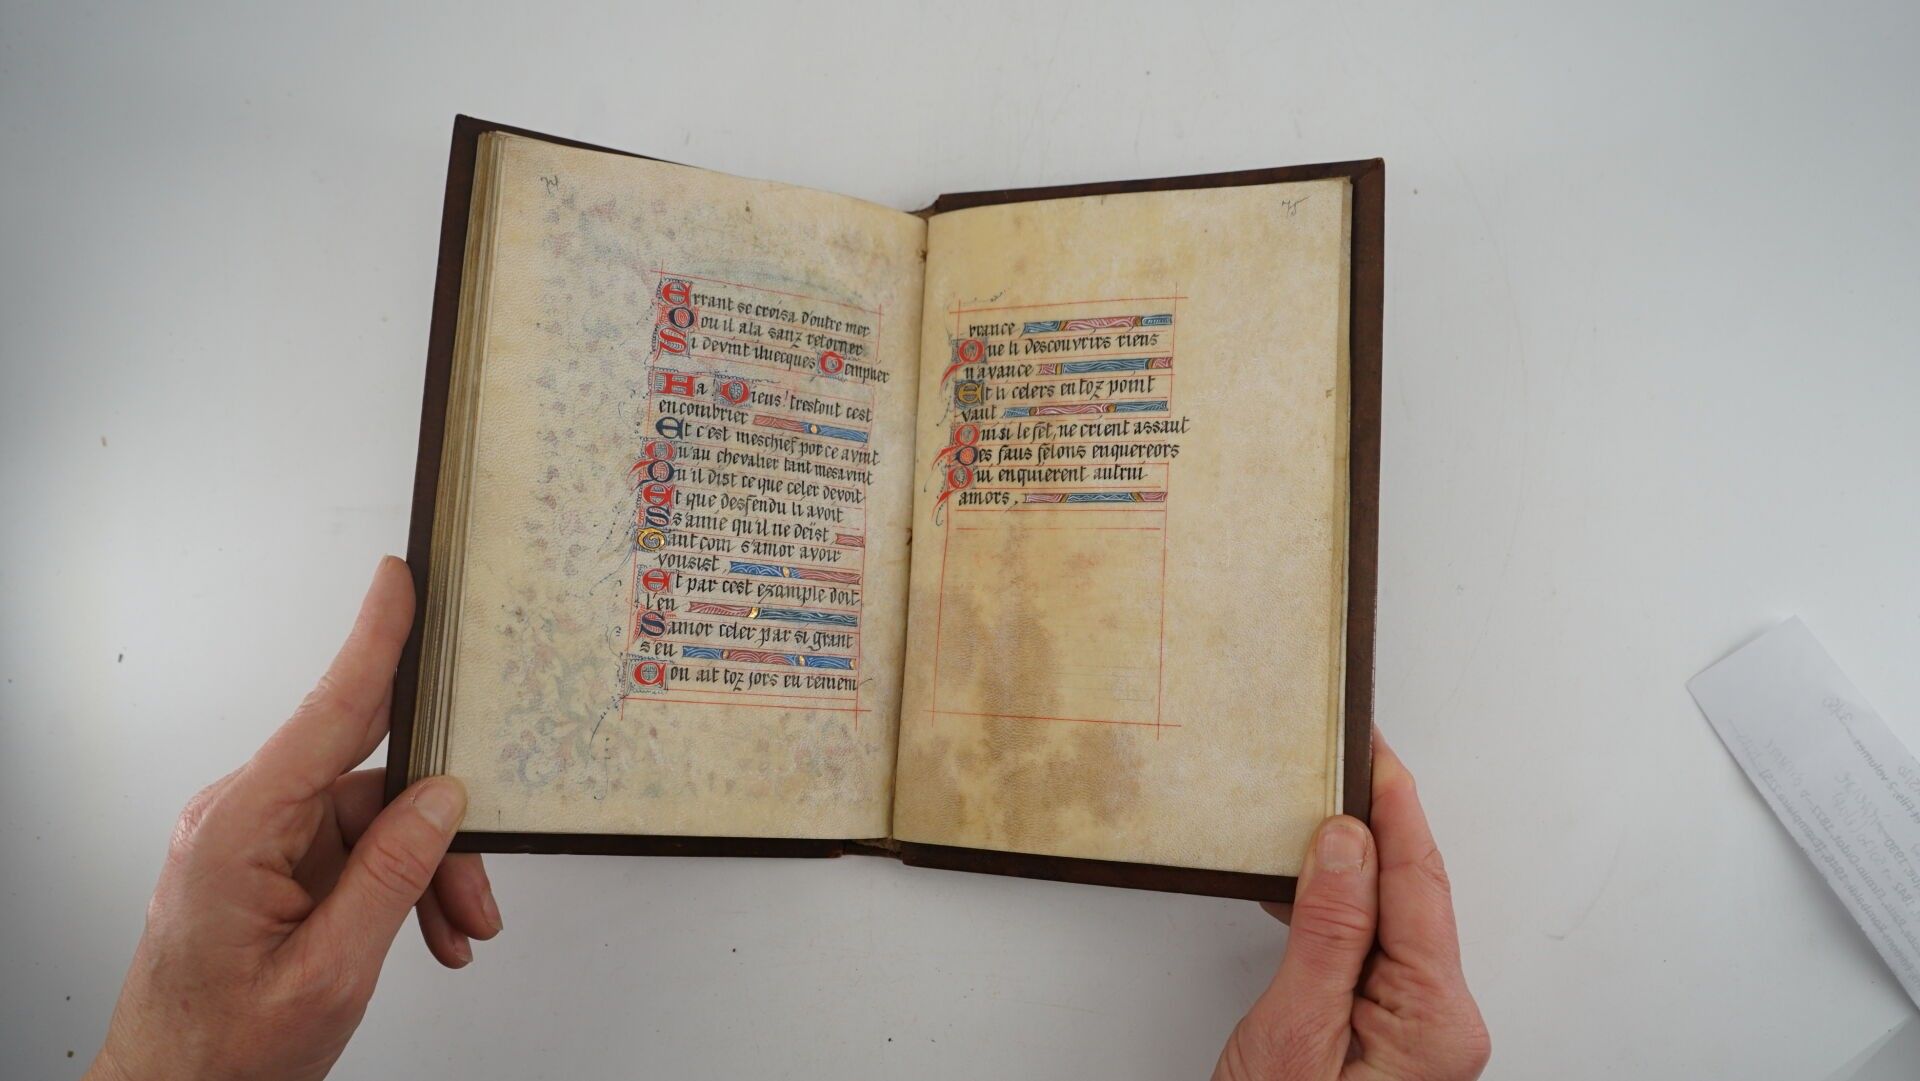 74
Errant se croisa d'outre mer
Oou il ala sanz retorner
Si devint iluecques Templier
Ha Dieus! trestout cest
encombrier
Et c'est meschief por ce avint
Qu'au chevalier tant mesavint
Qu'il dist ce que celer devoit
Et que desfendu li avoit
S s'amie qu'il ne deïst
Tant com s'amor avoir
vousist
Et par cest example doit
l'en
S'amor celer par si grant
sen
Con ait toz jors en remem
75
brance
Que li descouvrirs riens
n'avance
Et li celers en toz point
vaut
Qui si le fet, ne crient assaut
Des faus felons enquereors
Qui enquierent autrui
amors.